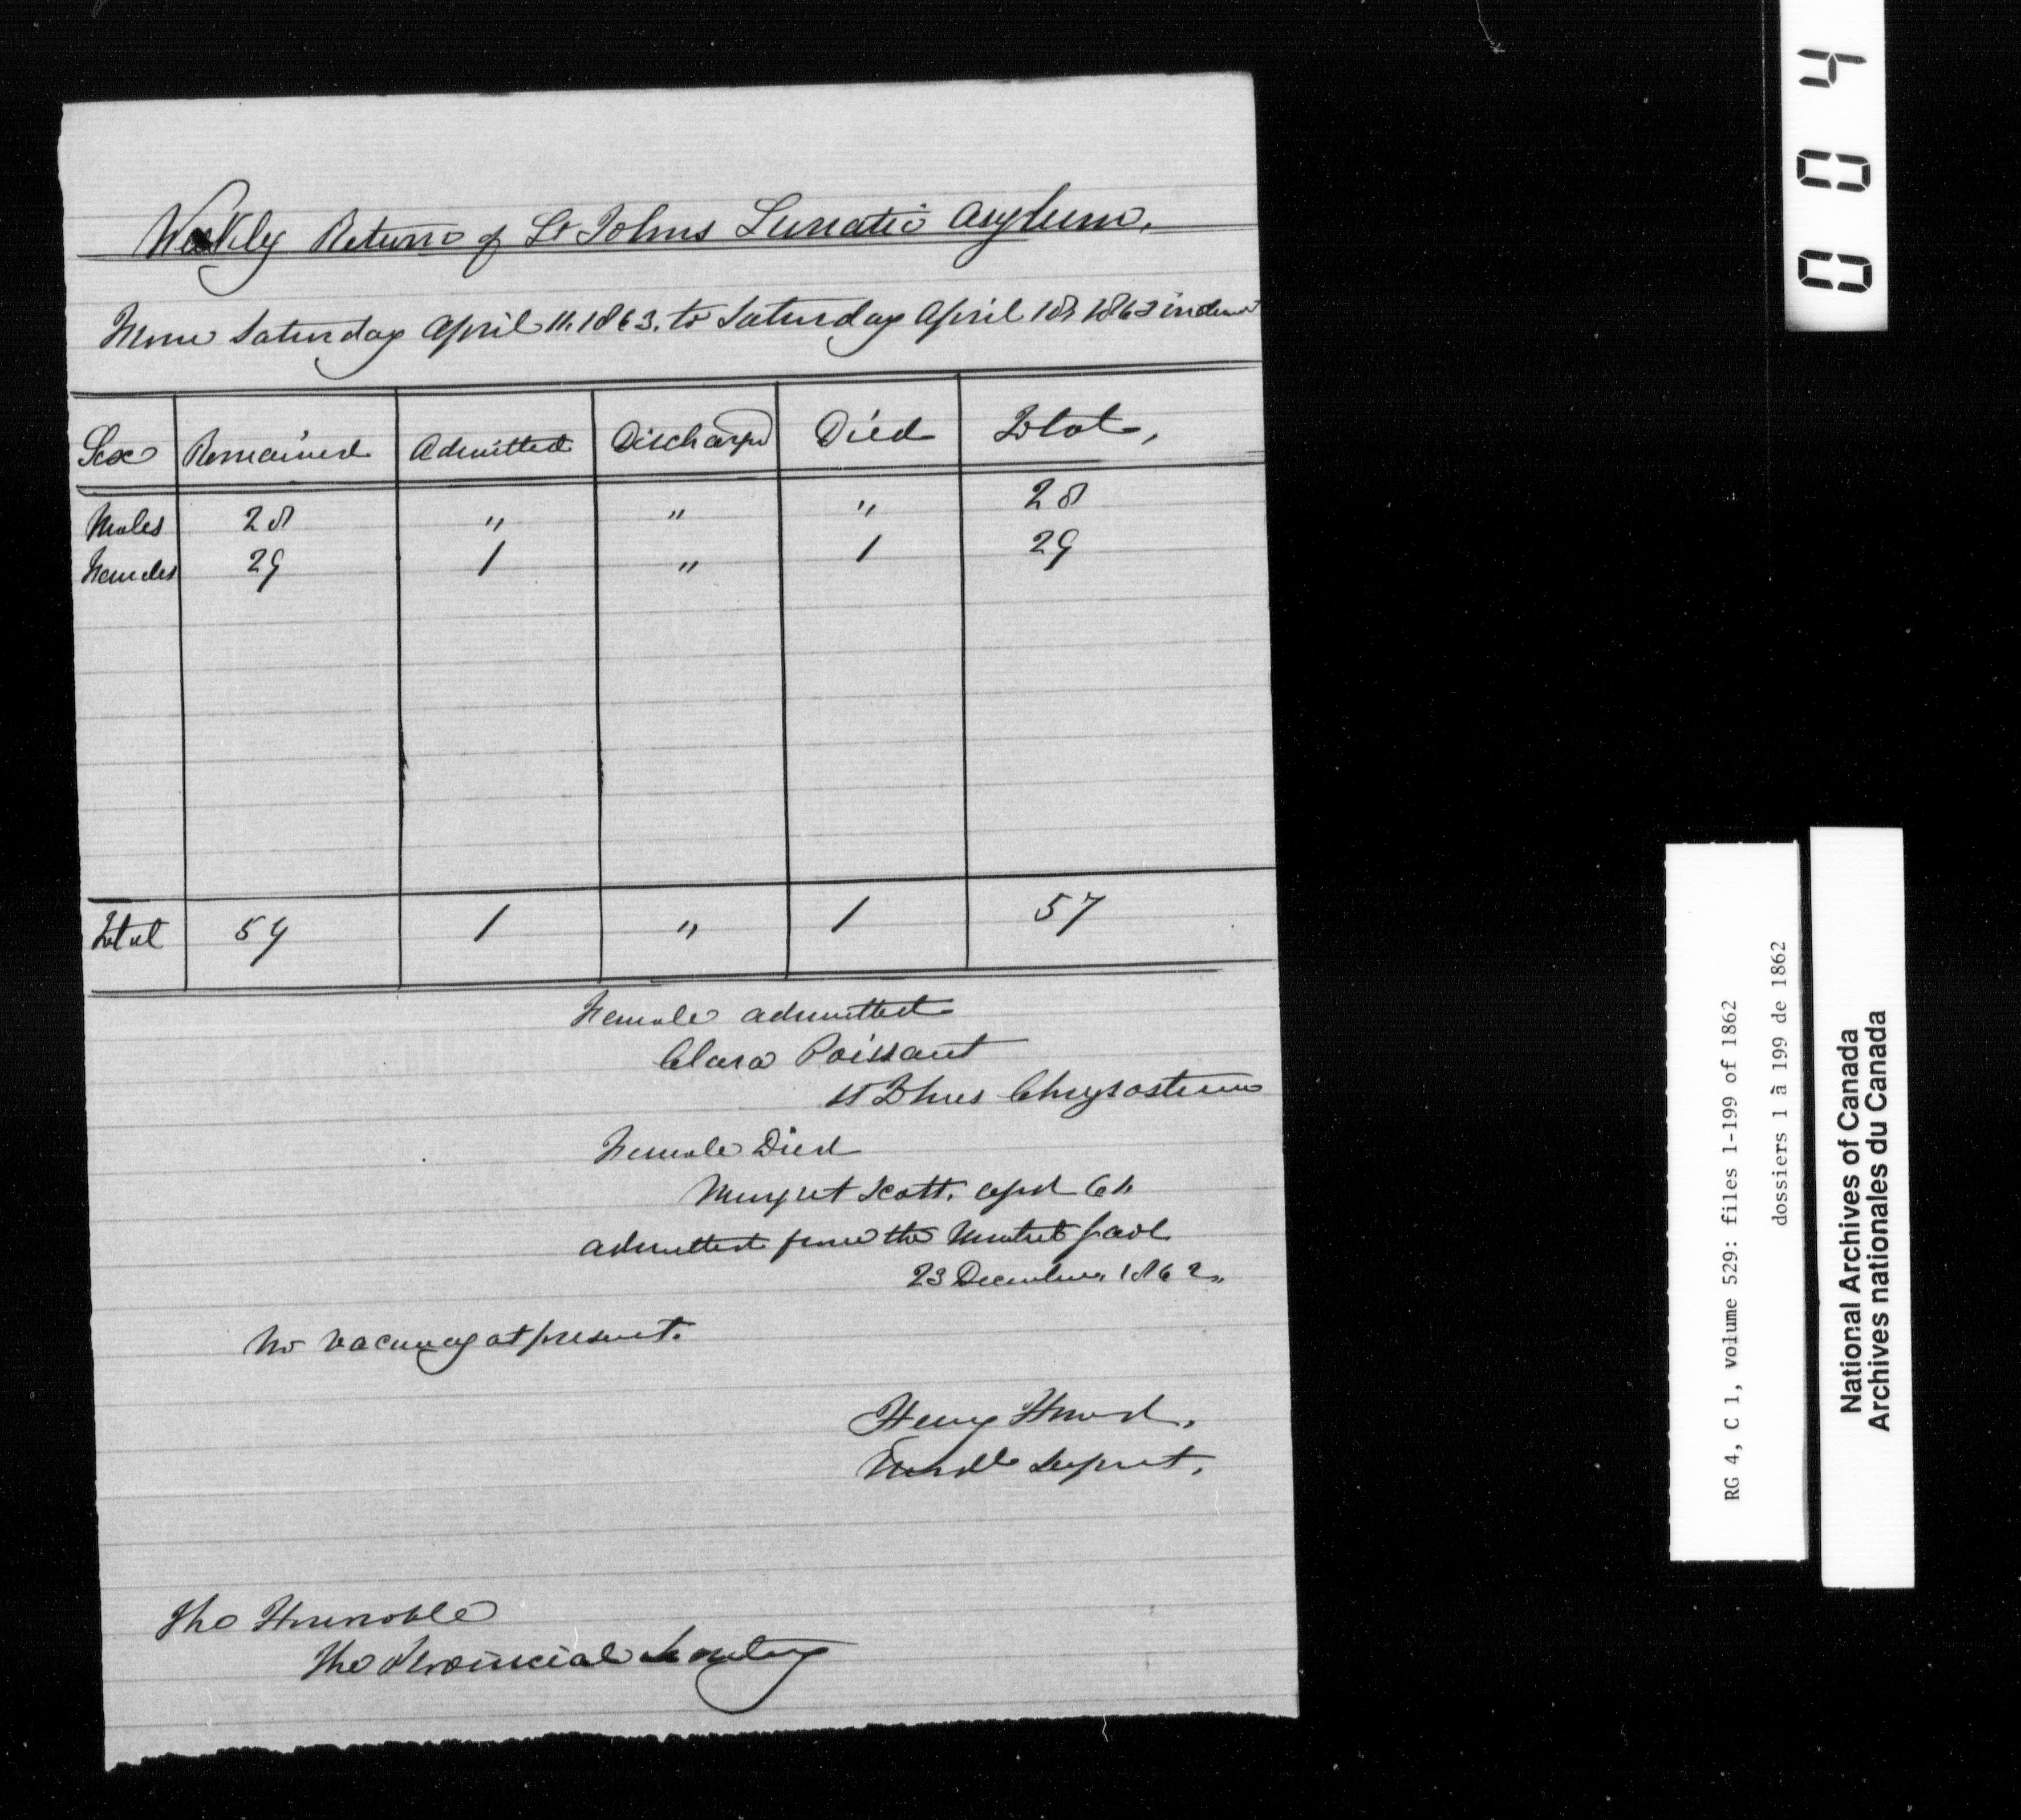 Weekly Return of St Johns Lunatic Asylum.
From Saturday April 11. 1863. to Saturday April 18 1863
Sex Remained Admitted Discharged Died Total,
Males 28 " " " 28
Females 29 1 " 1 29
Total 57 1 " 1 57
Female admitted
Clara Poissant
St Chrysostom
Female Died
Margret Scott. aged
admitted from the Montreal Gaol
23 December 1862
No vacancy at present.
Henry Howard.
Supert.
The Honorable
The Provincial Secretary
004
RG 4, C 1, volume 529: files 1-199 of 1862
dossiers 1 à 199 de 1862
National Archives of Canada
Archives nationales du Canada